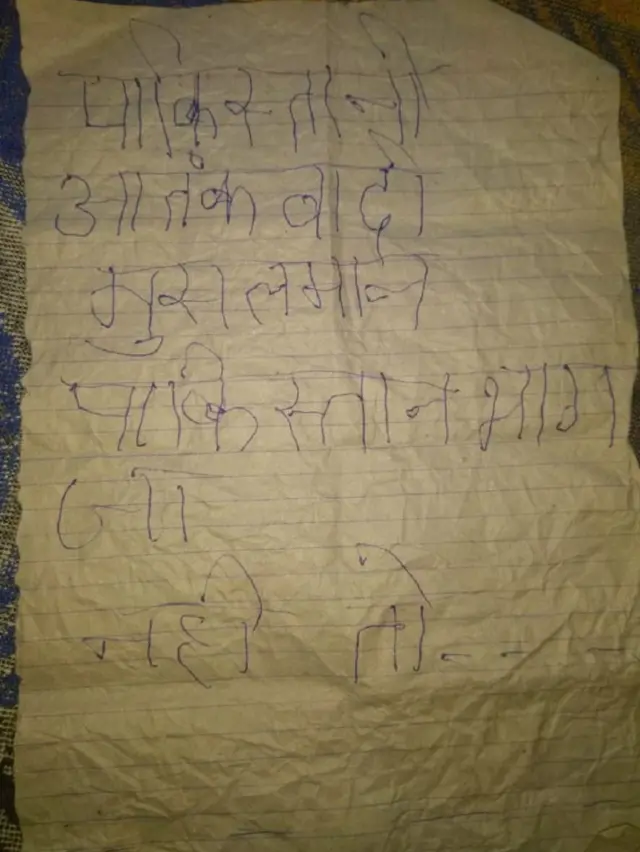 पाकिस्तानी
आतंकवादी
मुसलमान
पाकिस्तान भाग
जा
नही तो - - -